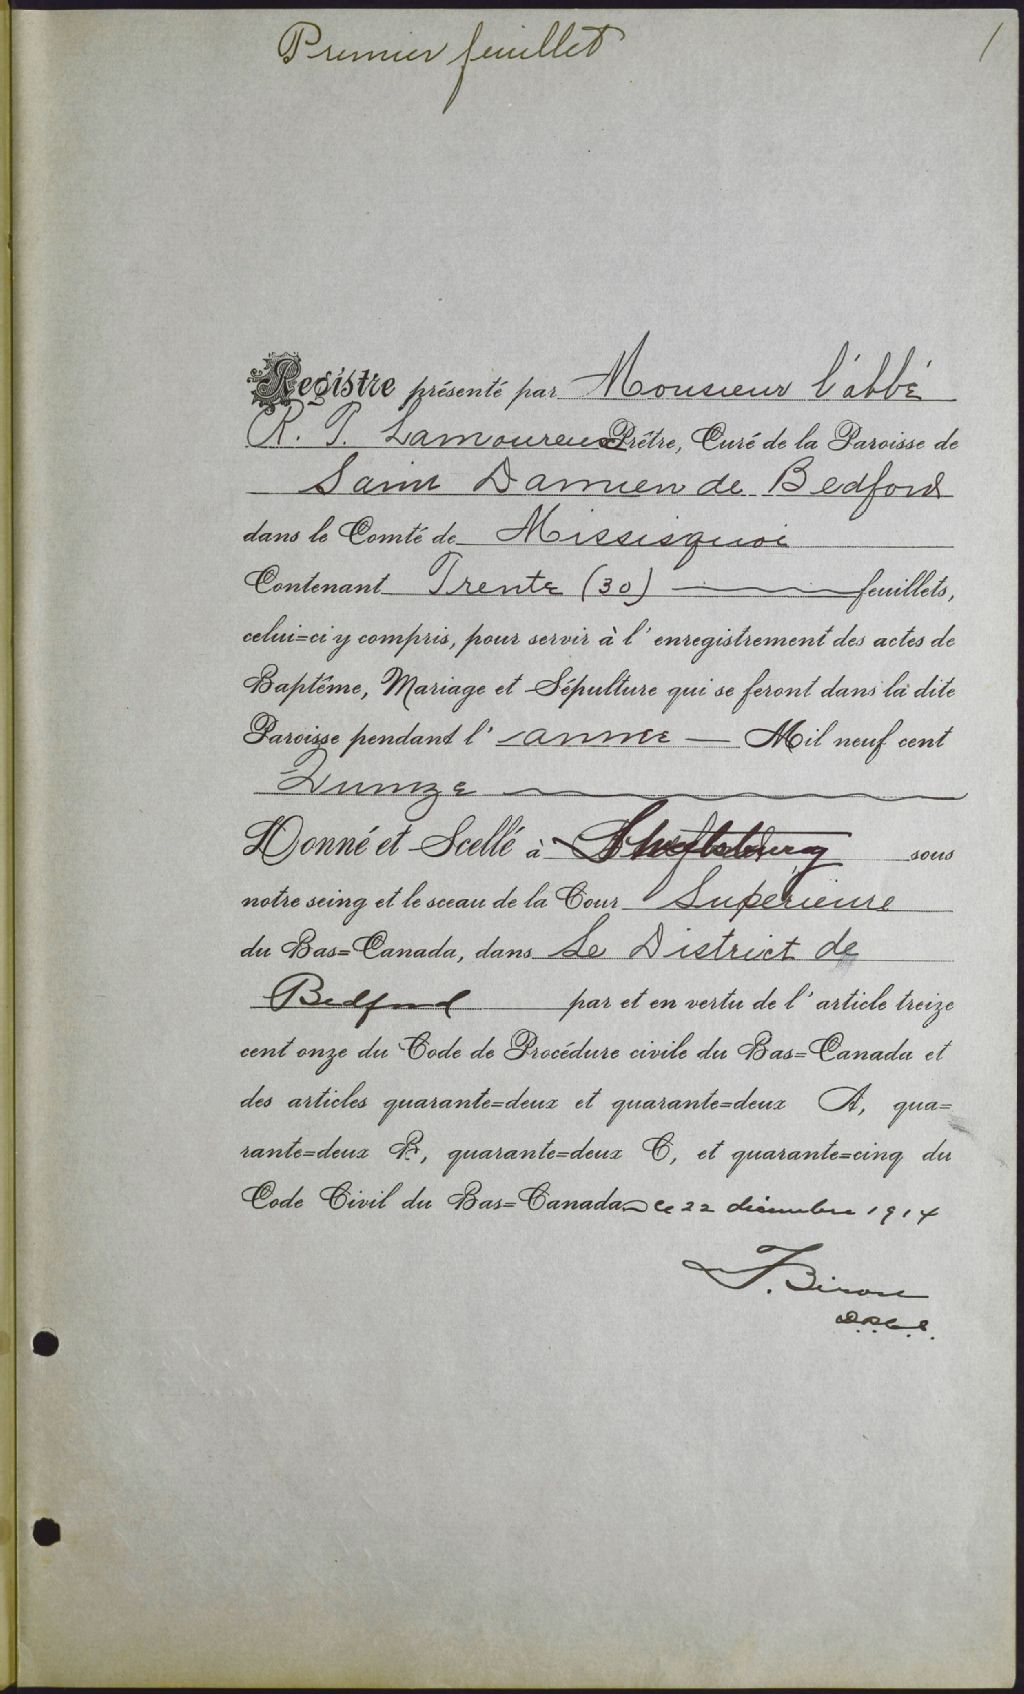 Premier feuillet
1
Registre présenté par Monsieur l'abbé
R. P. Lamoureux Prêtre, Curé de la Paroisse de
Saint Damien de Bedford
dans le Comté de Missisquoi
Contenant Trente (30) feuillets,
celui=ci y compris, pour servir à l'enregistrement des actes de
Baptême, Mariage et Sépulture qui se feront dans la dite
Paroisse pendant l'année Mil neuf cent
Quinze
Donné et Scellé à sous
notre seing et le sceau de la Cour Supérieure
du Bas=Canada, dans Le District de
Bedford par et en vertu de l'article treize
cent onze du Code de Procédure civile du Bas=Canada et
des articles quarante=deux et quarante=deux A, qua=
rante=deux B, quarante=deux C, et quarante=cinq du
Code Civil du Bas=Canada ce 22 décembre 1914
F. Biron